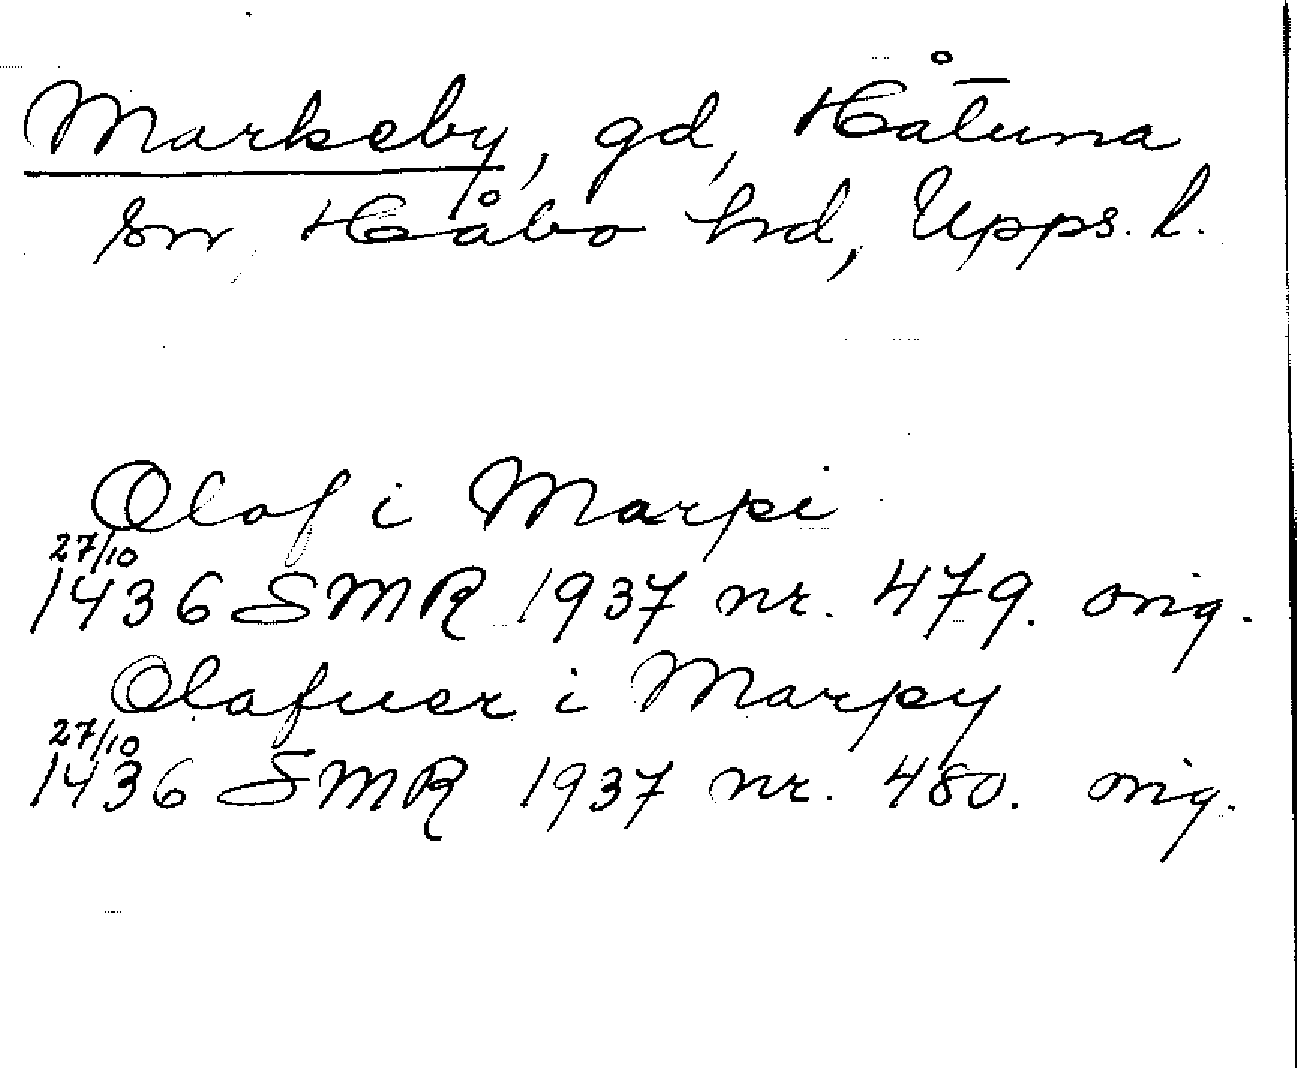 Markeby, gd, Håtuna
sn, Håbo hd, Upps. l.
Olof i Marpi
27/10
1436 SMR 1937 nr. 479. orig.
Olafuer i Marpy
27/10
1436 SMR 1937 nr. 480. orig.